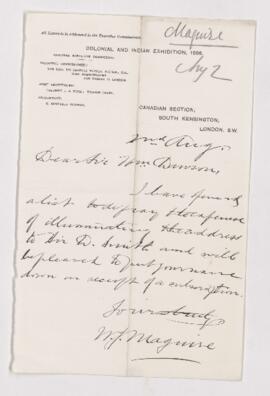 Maguire
Aug 2
All Letters to be addressed to the Executive Commissioner.
COLONIAL AND INDIAN EXHIBITION, 1886,
CANADIAN SECTION,
SOUTH KENSINGTON,
LONDON, S.W.
2nd Aug.
Dear Sir Wm Dawson,
I have opened
a list to defray the expense
of illuminating the address
to Sir D. Smith and will
be pleased to put your name
down on receipt of a subscription.
Yours truly
W. J. Maguire